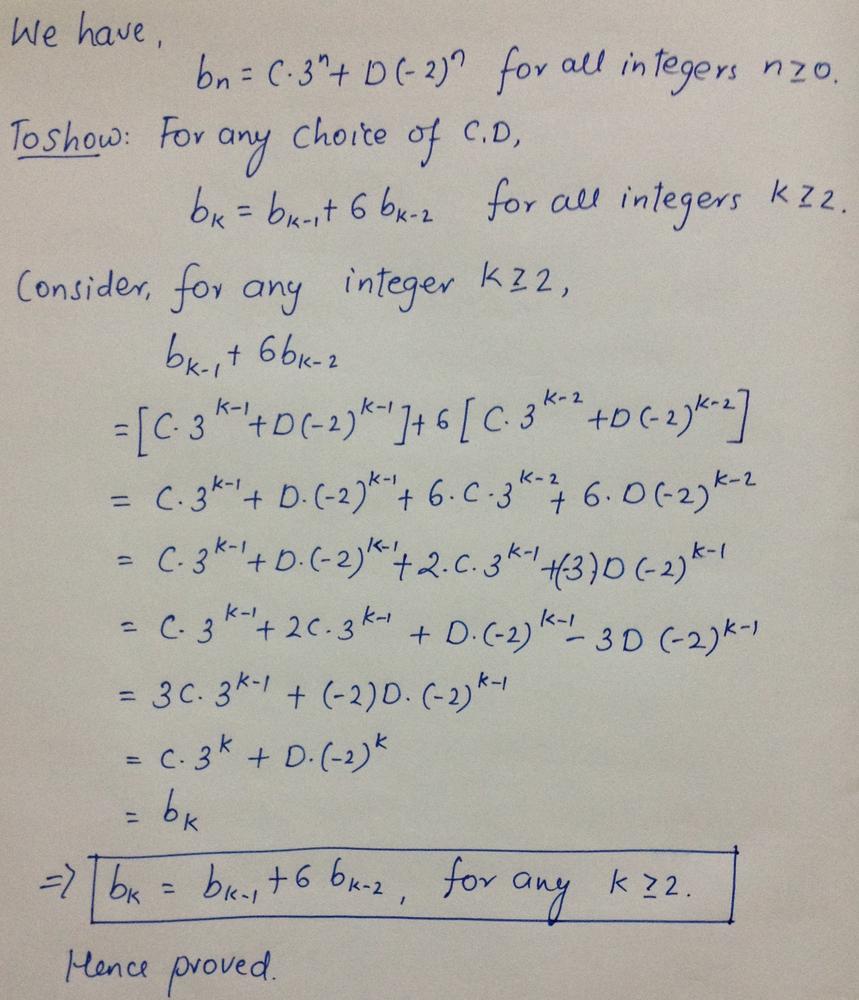 We have,
bn = C·3ⁿ + D(-2)ⁿ for all integers n≥0.
To show: For any choice of C.D,
bₖ = bₖ₋₁ + 6 bₖ₋₂ for all integers k≥2.
Consider, for any integer k≥2,
bₖ₋₁ + 6bₖ₋₂
= [C·3^{k-1} + D(-2)^{k-1}] + 6 [C·3^{k-2} + D(-2)^{k-2}]
= C·3^{k-1} + D·(-2)^{k-1} + 6·C·3^{k-2} + 6·D(-2)^{k-2}
= C·3^{k-1} + D·(-2)^{k-1} + 2·C·3^{k-1} + (-3)D(-2)^{k-1}
= C·3^{k-1} + 2C·3^{k-1} + D·(-2)^{k-1} - 3D(-2)^{k-1}
= 3C·3^{k-1} + (-2)D·(-2)^{k-1}
= C·3^k + D·(-2)^k
= bₖ
=> bₖ = bₖ₋₁ + 6 bₖ₋₂, for any k≥2.
Hence proved.